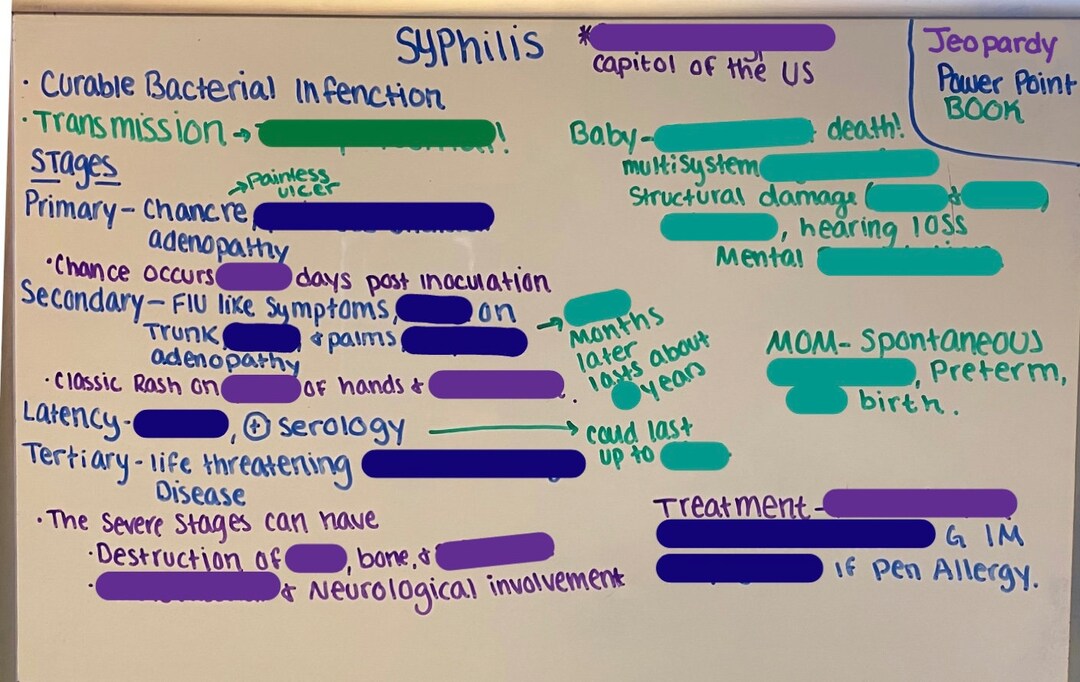 Syphilis
*
capitol of the US
Jeopardy
Power Point
BOOK
· Curable Bacterial Infenction
· Transmission → !
Stages
→ Painless
ulcer
Primary - Chancre
adenopathy
· Chance occurs days post inoculation
Secondary - Flu like Symptoms, on
Trunk & palms
adenopathy
· Classic Rash on of hands & .
→
Months
later
lasts about
years
Latency - , ⊕ serology → could last
up to
Tertiary - life threatening
Disease
· The severe stages can have
· Destruction of , bone, &
· & Neurological involvement
Baby - death!
multisystem
Structural damage ( & )
, hearing loss
Mental
MOM - Spontaneous
, Preterm,
birth.
Treatment -
G IM
if Pen Allergy.